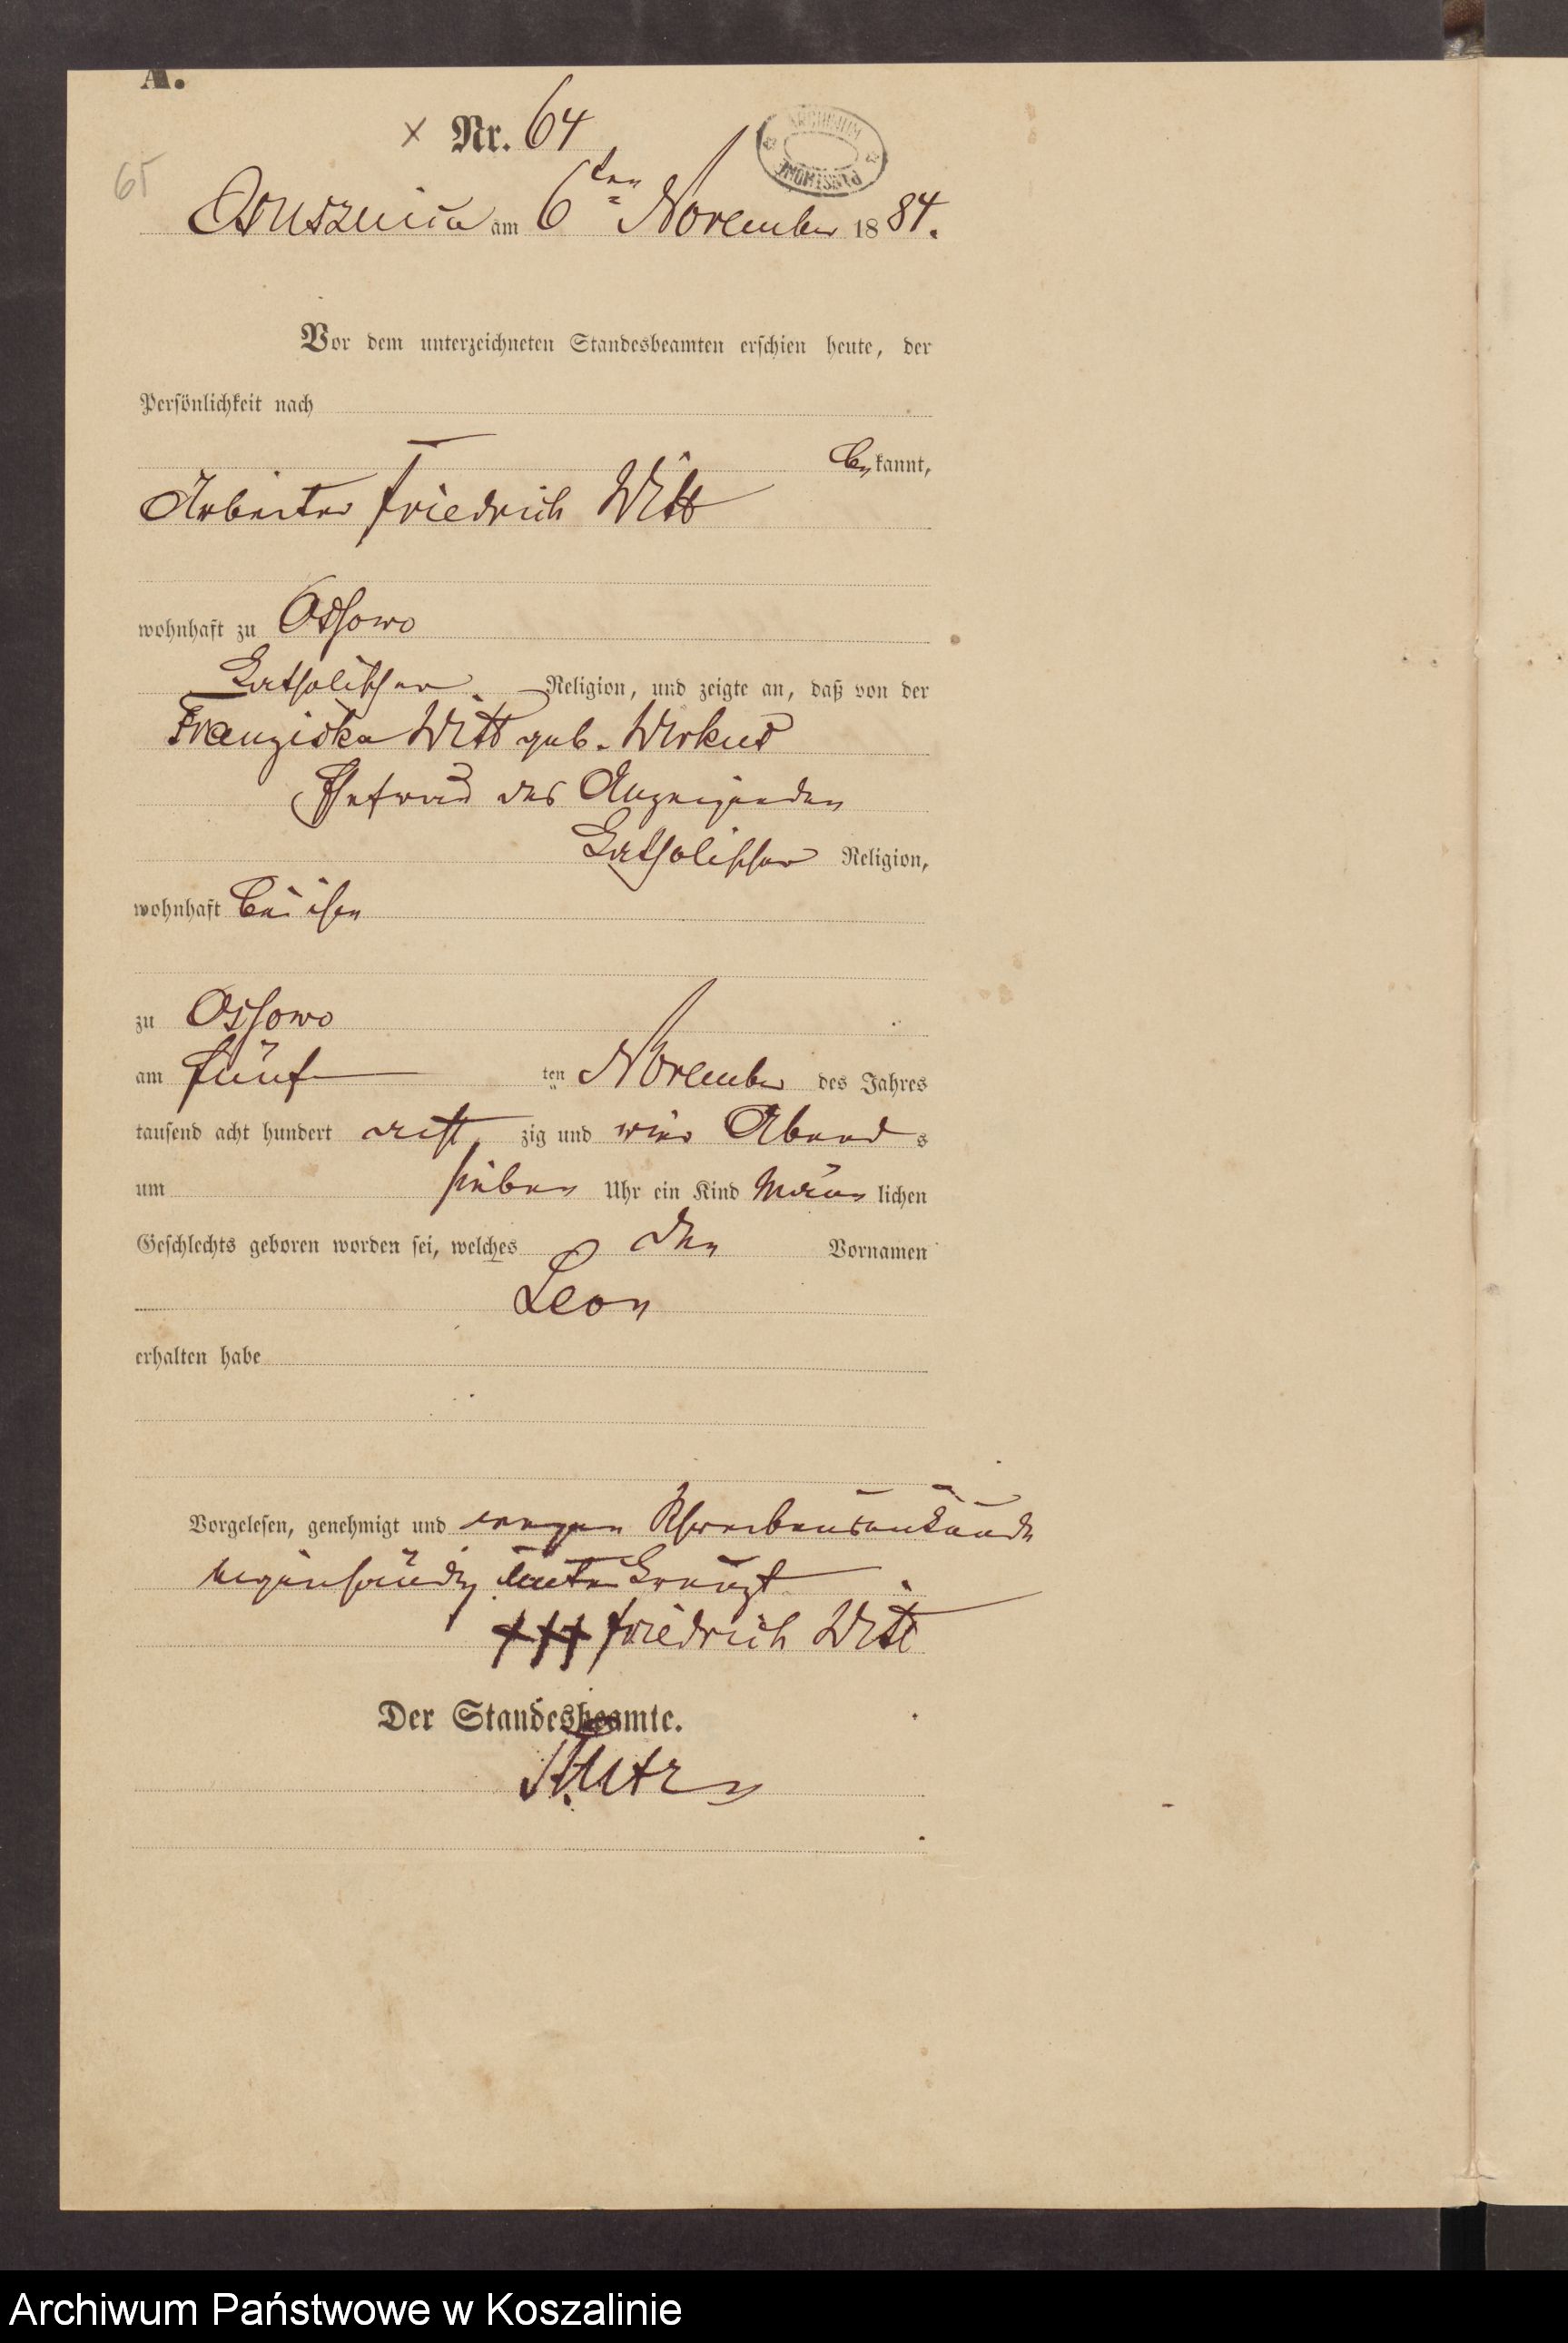 A.
× Nr. 64
65
ARCHIWUM PAŃSTWOWE
am 6ten November 1884.
Vor dem unterzeichneten Standesbeamten erschien heute, der
Persönlichkeit nach
bekannt,
Arbeiter Friedrich Witt
wohnhaft zu Ossowo
Katholischer Religion, und zeigte an, daß von der
Franziska Witt geb. Wirkus
Ehefrau des Anzeigenden
Katholischer Religion,
wohnhaft bei ihm
zu Ossowo
am fünf ten November des Jahres
tausend acht hundert acht zig und vier Abends
um sieben Uhr ein Kind männlichen
Geschlechts geboren worden sei, welches den Vornamen
Leon
erhalten habe
Vorgelesen, genehmigt und wegen Schreibensunkunde
eigenhändig unterkreuzt
+++ Friedrich Witt
Der Standesbeamte.
Archiwum Państwowe w Koszalinie